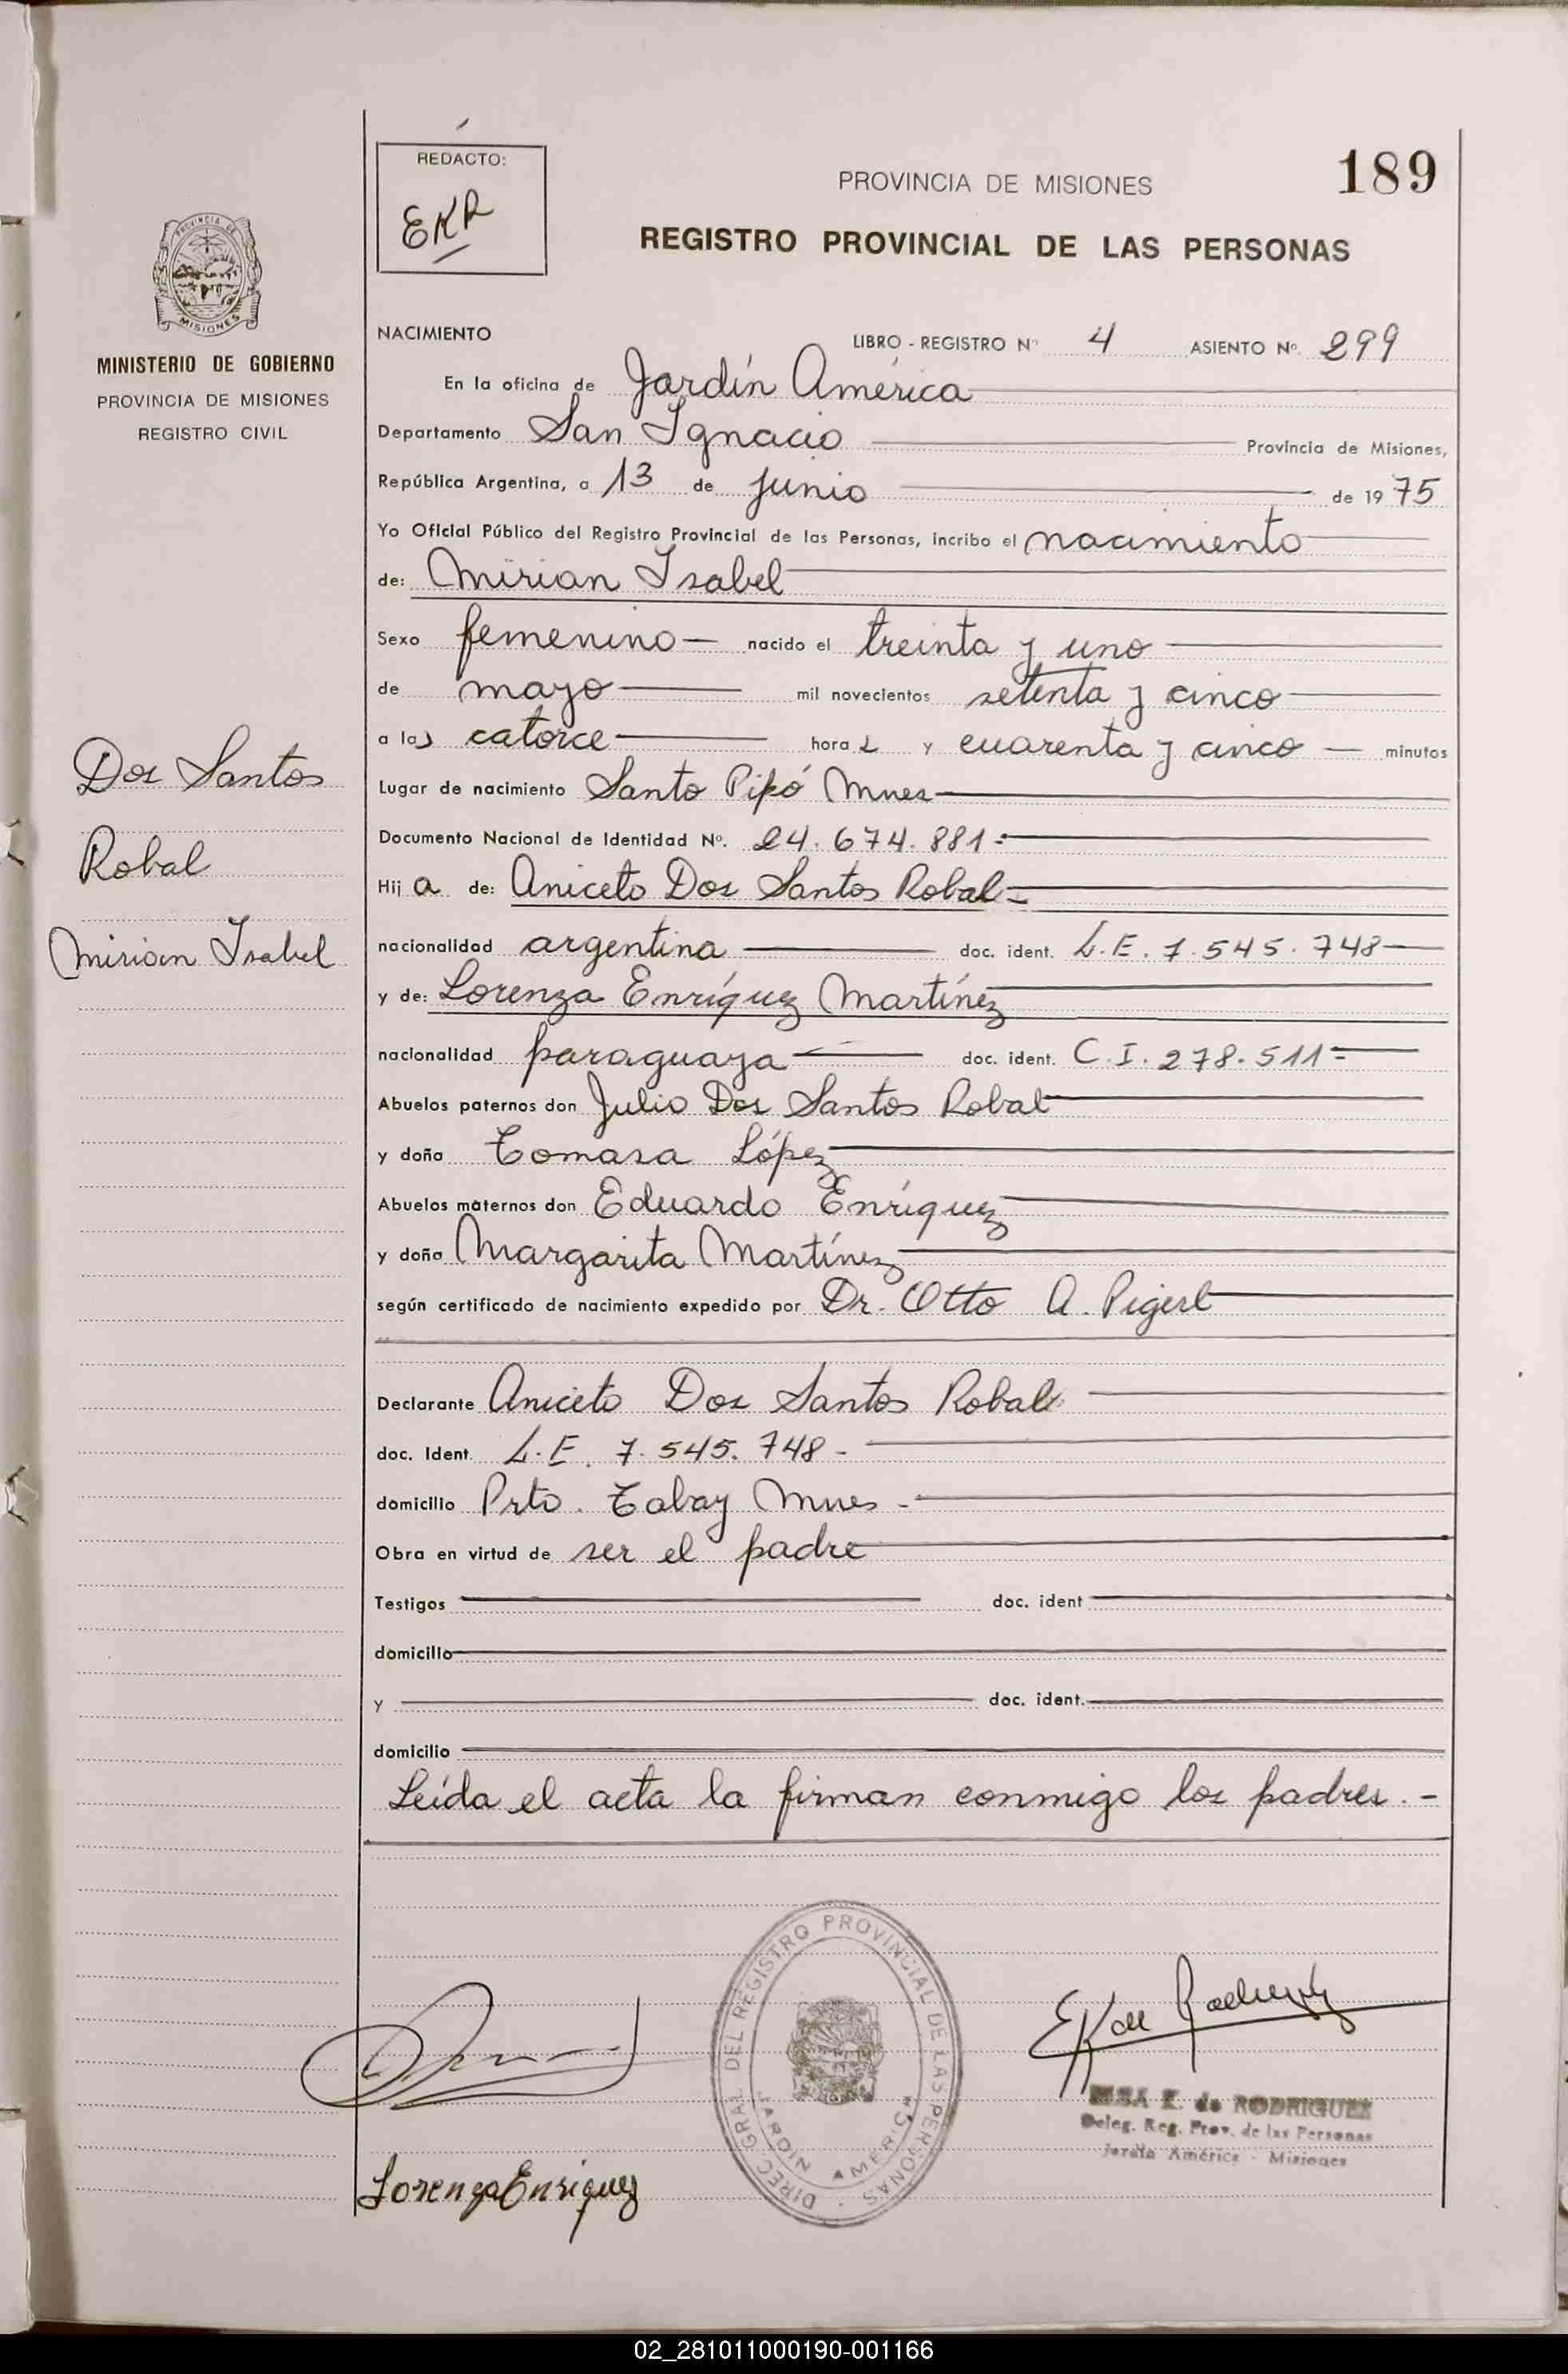 189
REDACTO:
EKR
PROVINCIA DE MISIONES
REGISTRO PROVINCIAL DE LAS PERSONAS
PROVINCIA DE
MISIONES
MINISTERIO DE GOBIERNO
PROVINCIA DE MISIONES
REGISTRO CIVIL
Dos Santos
Robal
Mirian Isabel
NACIMIENTO LIBRO - REGISTRO Nº 4 ASIENTO Nº 299
En la oficina de Jardín América
Departamento San Ignacio Provincia de Misiones,
República Argentina, a 13 de junio de 1975
Yo Oficial Público del Registro Provincial de las Personas, incribo el nacimiento
de: Mirian Isabel
Sexo femenino nacido el treinta y uno
de mayo mil novecientos setenta y cinco
a las catorce horas y cuarenta y cinco minutos
Lugar de nacimiento Santo Pipó Mnes
Documento Nacional de Identidad Nº. 24.674.881
Hija de: Aniceto Dos Santos Robal
nacionalidad argentina doc. ident. L.E. 7.545.748
y de: Lorenza Enríquez Martínez
nacionalidad paraguaya doc. ident. C.I. 278.511
Abuelos paternos don Julio Dos Santos Robal
y doña Tomasa López
Abuelos maternos don Eduardo Enríquez
y doña Margarita Martínez
según certificado de nacimiento expedido por Dr. Otto A. Pigerl
Declarante Aniceto Dos Santos Robal
doc. Ident. L.E. 7.545.748.-
domicilio Prto. Tabay Mnes -
Obra en virtud de ser el padre
Testigos doc. ident
domicilio
y doc. ident.
domicilio
Leída el acta la firman conmigo los padres.-
DIREC. GRAL. DEL REGISTRO PROVINCIAL DE LAS PERSONAS
JARDIN AMERICA
ELSA K. de RODRIGUEZ
Deleg. Reg. Prov. de las Personas
Jardín América - Misiones
Lorenza Enriquez
02_281011000190-001166